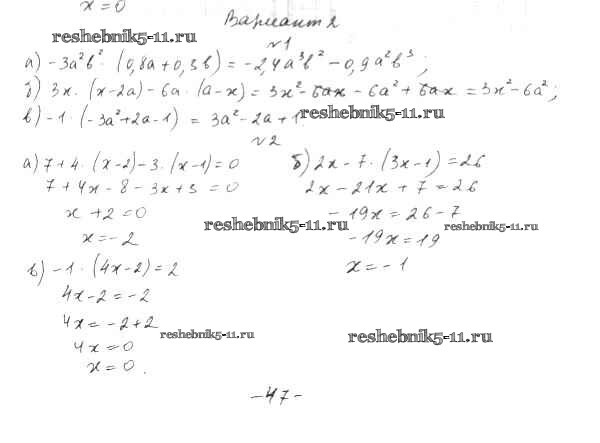 x = 0
Вариант 2
reshebnik5-11.ru
№1
а) -3a²b² · (0,8a + 0,3b) = -2,4a³b² - 0,9a²b³;
б) 3x · (x-2a) - 6a · (a-x) = 3x² - 6ax - 6a² + 6ax = 3x² - 6a²;
в) -1 · (-3a² + 2a - 1) = 3a² - 2a + 1.
reshebnik5-11.ru
№2
а) 7 + 4 · (x-2) - 3 · (x-1) = 0
7 + 4x - 8 - 3x + 3 = 0
x + 2 = 0
x = -2
б) 2x - 7 · (3x-1) = 26
2x - 21x + 7 = 26
-19x = 26 - 7
-19x = 19
x = -1
reshebnik5-11.ru
reshebnik5-11.ru
в) -1 · (4x-2) = 2
4x - 2 = -2
4x = -2 + 2
4x = 0
x = 0.
reshebnik5-11.ru
reshebnik5-11.ru
-47-